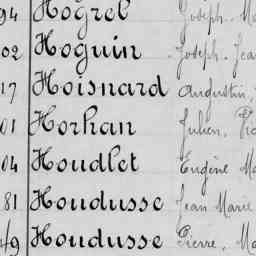 94 Hogrel Joseph
02 Hoguin Joseph Jean
17 Hoisnard Augustin
01 Horhan Julien
04 Houdlet Eugène
81 Houdusse Jean Marie
49 Houdusse Pierre